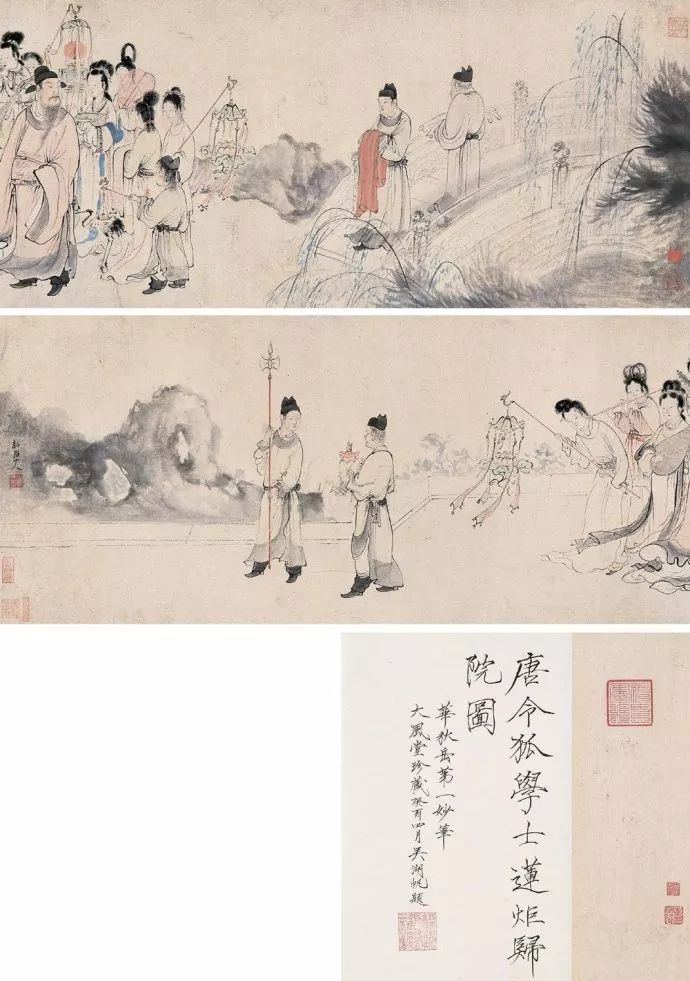 新羅山人
唐令狐學士蓮炬歸
院圖
華秋岳第一妙筆
大風堂珍藏癸酉四月吳湖帆題